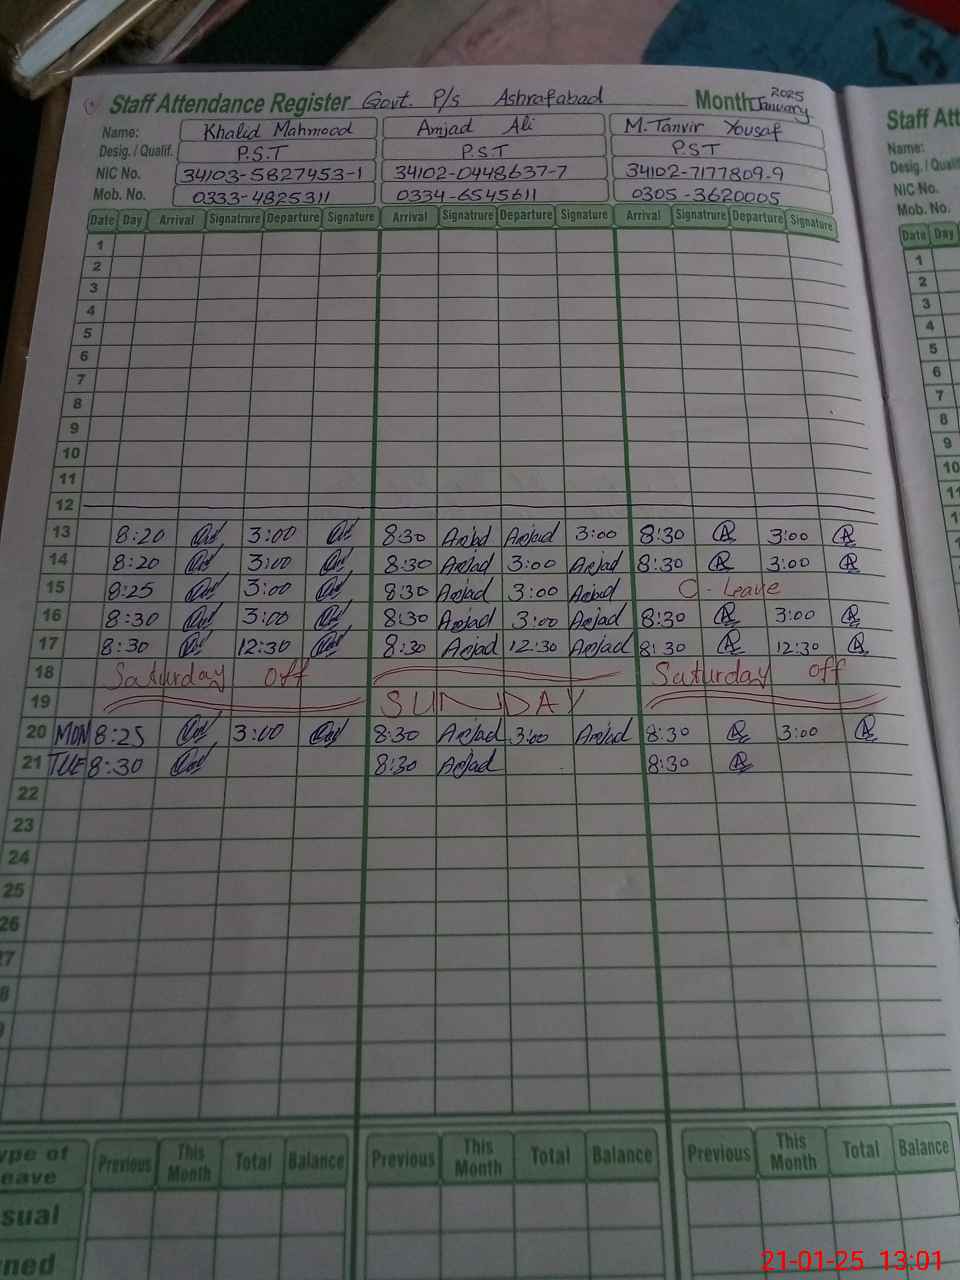 Staff Attendance Register Govt. P/s Ashrafabad Month January 2025
Name: Khalid Mahmood Amjad Ali M. Tanvir Yousaf
Desig. / Qualif. P.S.T P.S.T P.S.T
NIC No. 34103-5827453-1 34102-0448637-7 34102-7177809-9
Mob. No. 0333-4825311 0334-6545611 0305-3620005
Date Day Arrival Signatrure Departure Signature Arrival Signatrure Departure Signature Arrival Signatrure Departure Signature
1
2
3
4
5
6
7
8
9
10
11
12
13 8:20 3:00 8:30 Amjad Amjad 3:00 8:30 3:00
14 8:20 3:00 8:30 Amjad 3:00 Amjad 8:30 3:00
15 8:25 3:00 8:30 Amjad 3:00 Amjad C. Leave
16 8:30 3:00 8:30 Amjad 3:00 Amjad 8:30 3:00
17 8:30 12:30 8:30 Amjad 12:30 Amjad 8:30 12:30
18 Saturday off Saturday off
19 SUNDAY
20 MON 8:25 3:00 8:30 Amjad 3:00 Amjad 8:30 3:00
21 TUE 8:30 8:30 Amjad 8:30
22
23
24
25
26
7
8
9
ype of eave Previous This Month Total Balance Previous This Month Total Balance Previous This Month Total Balance
sual
ned
Staff Att
Name:
Desig. / Qualif
NIC No.
Mob. No.
Date Day
1
2
3
4
5
6
7
8
9
10
11
12
21-01-25 13:01